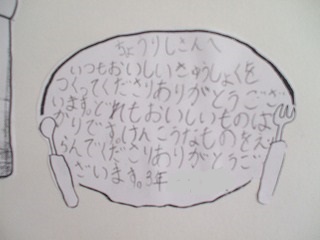 ちょうりしさんへ
いつもおいしいきゅうしょくを
つくってくださりありがとうござ
います。どれもおいしいものば
かりです。けんこうなものをえ
らんでくださりありがとうご
ざいます。3年